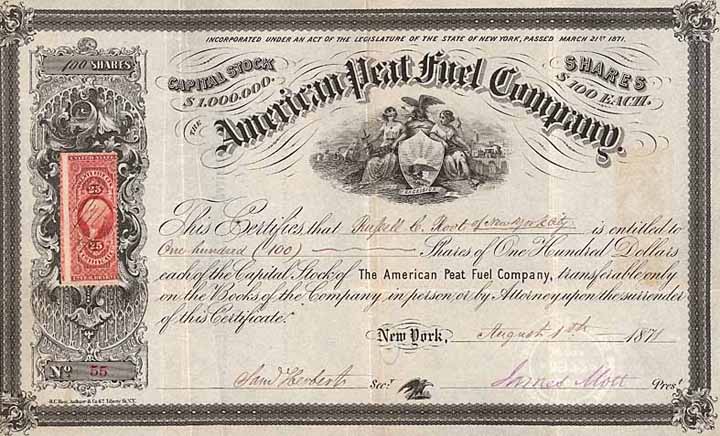 INCORPORATED UNDER AN ACT OF THE LEGISLATURE OF THE STATE OF NEW YORK, PASSED MARCH 21ST 1871.
100 SHARES
CAPITAL STOCK
$1,000,000.
SHARES
$100 EACH.
THE
American Peat Fuel Company.
EXCELSIOR
25
25
CERTIFICATE
This Certifies that Russell C. Root of New York City is entitled to
One hundred (100) Shares of One Hundred Dollars
each of the Capital Stock of The American Peat Fuel Company, transferable only
on the Books of the Company, in person or by Attorney upon the surrender
of this Certificate.
New York, August 1871
No 55
Saml Herbert Secy
James Mott Prest